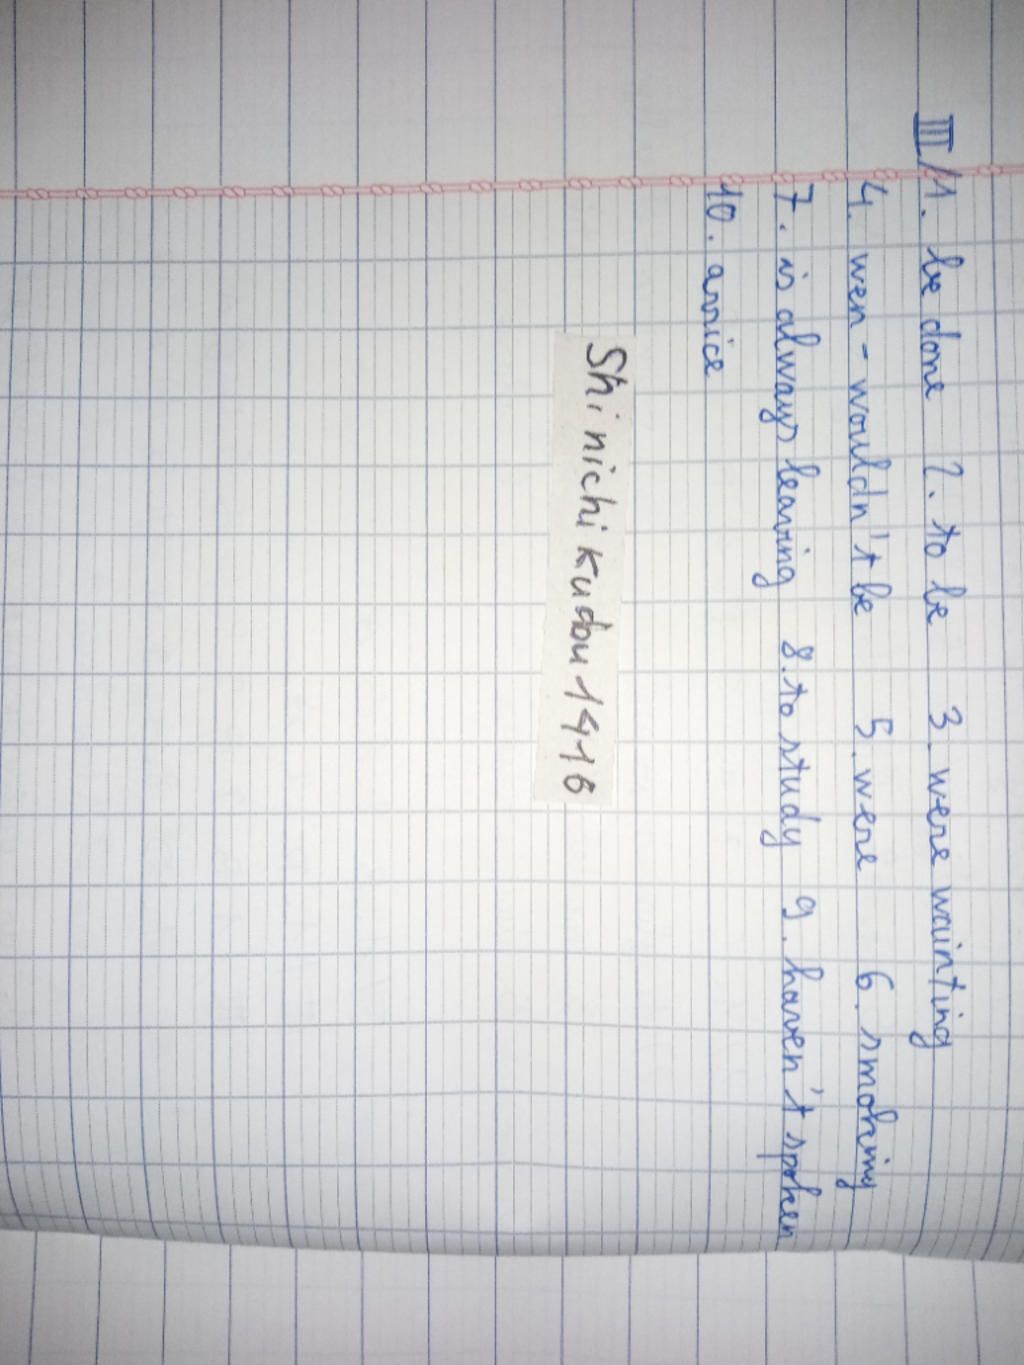 III/1. be done 2. to be 3. were wainting
4. wen - wouldn't be 5. were 6. smoking
7. is always leaving 8. to study 9. haven't spoken
10. arrice
Shinichikudou1416